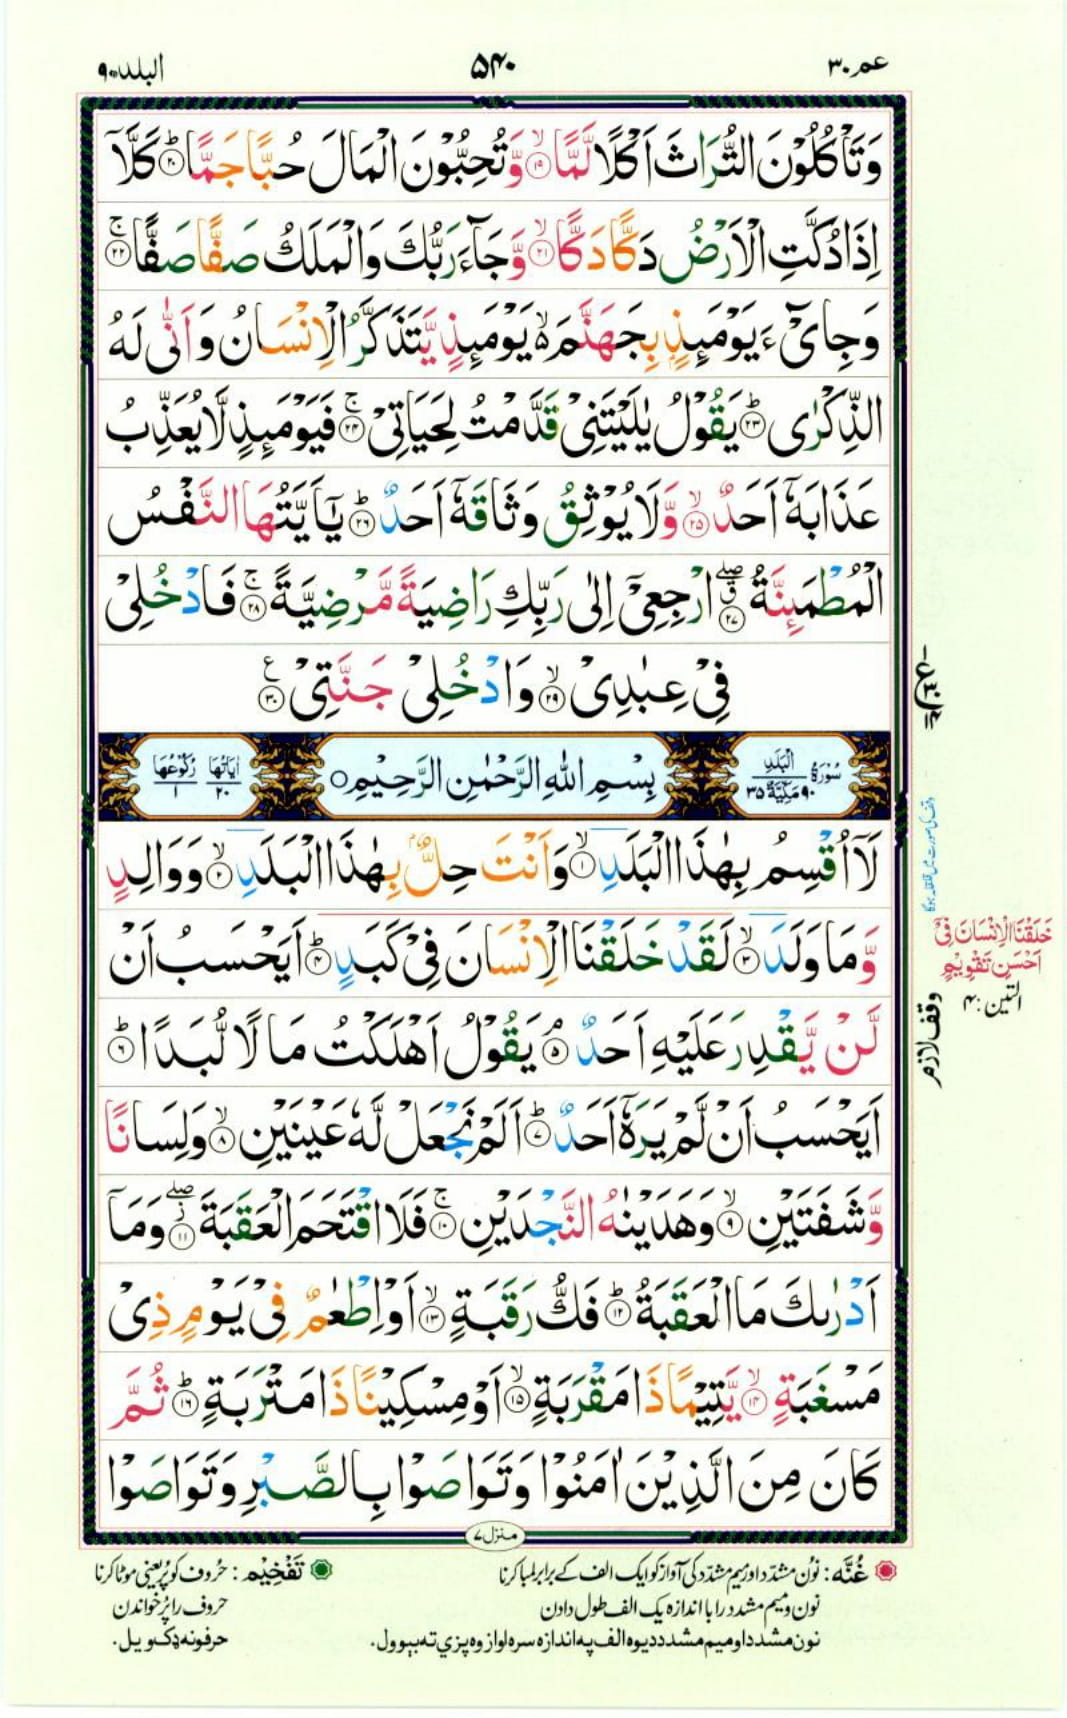 عم ۳۰
۵۴۰
البلد ۹۰
وَتَاْكُلُوْنَ التُّرَاثَ اَكْلًا لَّمًّا ۙ‏﴿۱۹﴾ وَّتُحِبُّوْنَ الْمَالَ حُبًّا جَمًّا ؕ‏﴿۲۰﴾ كَلَّاۤ
اِذَا دُكَّتِ الْاَرْضُ دَكًّا دَكًّا ۙ‏﴿۲۱﴾ وَّجَآءَ رَبُّكَ وَالْمَلَكُ صَفًّا صَفًّا ۚ‏﴿۲۲﴾
وَجِایْٓءَ يَوْمَىِٕذٍۭ بِجَهَنَّمَ ۙ۬ يَوْمَىِٕذٍ يَّتَذَكَّرُ الْاِنْسَانُ وَاَنّٰى لَهُ
الذِّكْرٰى ؕ‏﴿۲۳﴾ يَقُوْلُ يٰلَيْتَنِىْ قَدَّمْتُ لِحَيَاتِىْ ۚ‏﴿۲۴﴾ فَيَوْمَىِٕذٍ لَّا يُعَذِّبُ
عَذَابَهٗۤ اَحَدٌ ۙ‏﴿۲۵﴾ وَّلَا يُوْثِقُ وَثَاقَهٗۤ اَحَدٌ ؕ‏﴿۲۶﴾ يٰۤاَيَّتُهَا النَّفْسُ
الْمُطْمَىِٕنَّةُ ۖۗ‏﴿۲۷﴾ ارْجِعِىْۤ اِلٰى رَبِّكِ رَاضِيَةً مَّرْضِيَّةً ۚ‏﴿۲۸﴾ فَادْخُلِىْ
فِىْ عِبٰدِىْ ۙ‏﴿۲۹﴾ وَادْخُلِىْ جَنَّتِىْ ‏﴿۳۰﴾ ع
سُوْرَةُ الْبَلَدِ ۹۰ مَكِّيَّةٌ ۳۵
بِسْمِ اللّٰهِ الرَّحْمٰنِ الرَّحِيْمِ ○
اٰيَاتُهَا ۲۰ رُكُوْعُهَا ۱
لَاۤ اُقْسِمُ بِهٰذَا الْبَلَدِ ۙ‏﴿۱﴾ وَاَنْتَ حِلٌّۢ بِهٰذَا الْبَلَدِ ۙ‏﴿۲﴾ وَوَالِدٍ
وَّمَا وَلَدَ ۙ‏﴿۳﴾ لَقَدْ خَلَقْنَا الْاِنْسَانَ فِىْ كَبَدٍ ؕ‏﴿۴﴾ اَيَحْسَبُ اَنْ
لَّنْ يَّقْدِرَ عَلَيْهِ اَحَدٌ ۘ‏﴿۵﴾ يَقُوْلُ اَهْلَكْتُ مَالًا لُّبَدًا ؕ‏﴿۶﴾
اَيَحْسَبُ اَنْ لَّمْ يَرَهٗۤ اَحَدٌ ؕ‏﴿۷﴾ اَلَمْ نَجْعَلْ لَّهٗ عَيْنَيْنِ ۙ‏﴿۸﴾ وَلِسَانًا
وَّشَفَتَيْنِ ۙ‏﴿۹﴾ وَهَدَيْنٰهُ النَّجْدَيْنِ ۚ‏﴿۱۰﴾ فَلَا اقْتَحَمَ الْعَقَبَةَ ۖ ز‏﴿۱۱﴾ وَمَاۤ
اَدْرٰٮكَ مَا الْعَقَبَةُ ؕ‏﴿۱۲﴾ فَكُّ رَقَبَةٍ ۙ‏﴿۱۳﴾ اَوْ اِطْعٰمٌ فِىْ يَوْمٍ ذِىْ
مَسْغَبَةٍ ۙ‏﴿۱۴﴾ يَّتِيْمًا ذَا مَقْرَبَةٍ ۙ‏﴿۱۵﴾ اَوْ مِسْكِيْنًا ذَا مَتْرَبَةٍ ؕ‏﴿۱۶﴾ ثُمَّ
كَانَ مِنَ الَّذِيْنَ اٰمَنُوْا وَتَوَاصَوْا بِالصَّبْرِ وَتَوَاصَوْا
وقف کی صورت میں قلقلہ ہوگا
خَلَقْنَا الْاِنْسَانَ فِىْۤ
اَحْسَنِ تَقْوِيْمٍ
التین: ۴
وقف لازم
منزل ۷
غُنَّه: نون مشدد اور میم مشدد کی آواز کو ایک الف کے برابر لمبا کرنا
نون و میم مشدد را با اندازه یک الف طول دادن
نون مشدد او میم مشدد دیوه الف په اندازه سره اواز وه پزې ته بېوول.
تَفْخِیْم: حروف کو پُر یعنی موٹا کرنا
حروف را پُر خواندن
حرفونه ډک ویل.